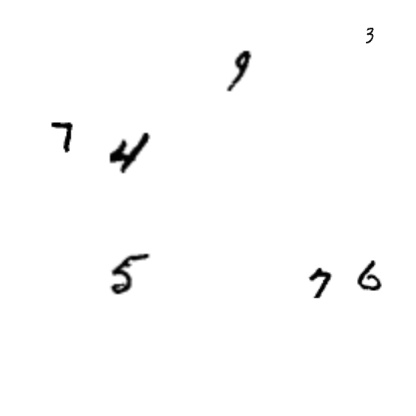 3
9
7 4
5 7 6